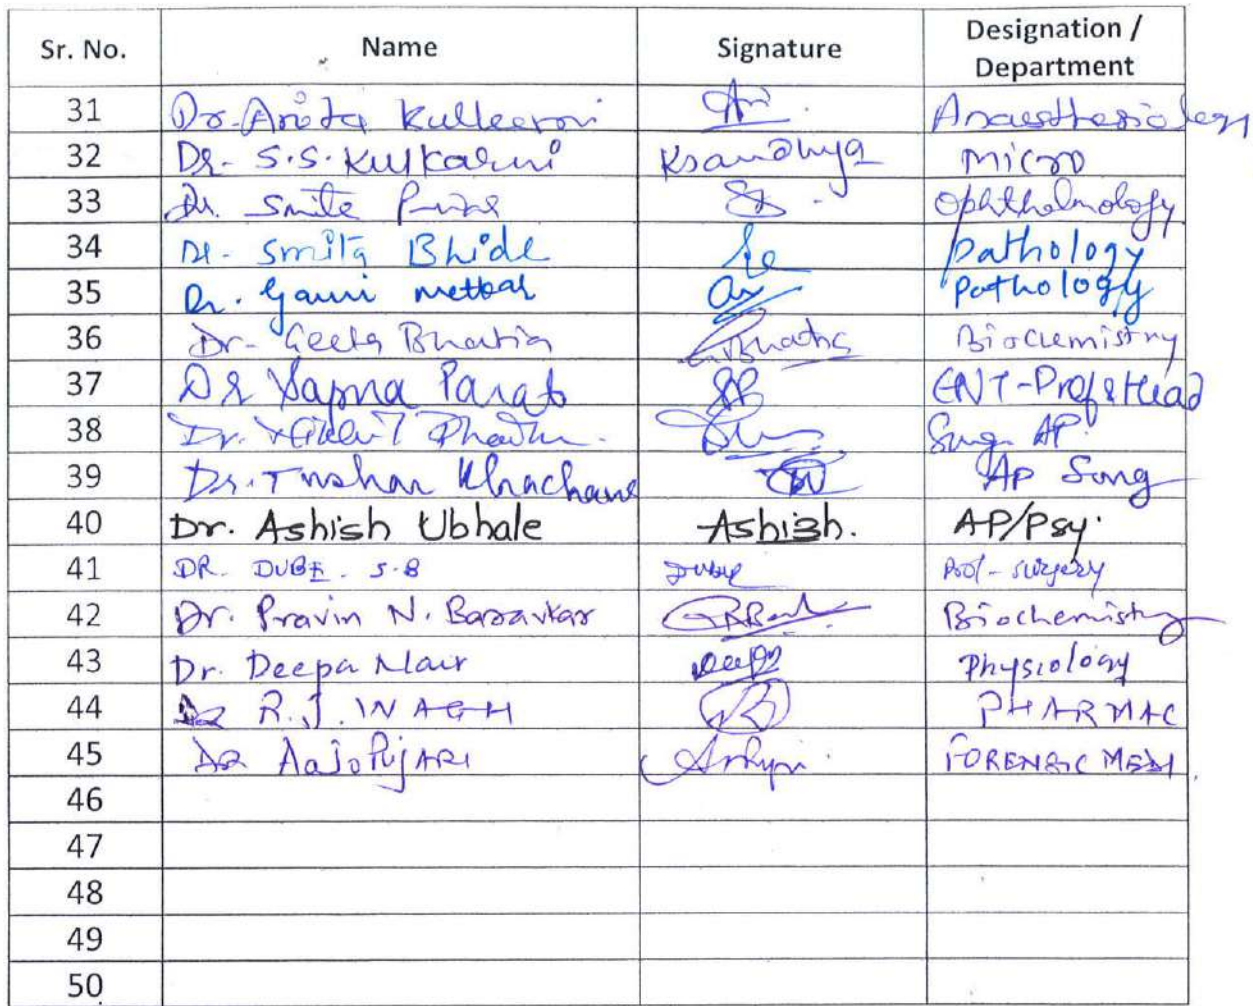 Sr. No. Name Signature Designation / Department
31 Dr. Anita Kulkarni Anaesthesiology
32 Dr. S.S. Kulkarni Ksandhya Micro
33 Dr. Smita Ophthalmology
34 Dr. Smita Bhide Pathology
35 Dr. Gauri Pathology
36 Dr. Geeta Bhatia GBhatia Biochemistry
37 Dr Sapna Parab SP ENT-Prof & Head
38 Dr. Surg. AP.
39 Dr. Tushar Khachane AP Surg
40 Dr. Ashish Ubhale Ashish. AP/Psy.
41 DR. DUBE. S.B Dube Prof - surgery
42 Dr. Pravin N. Baravkar Biochemistry
43 Dr. Deepa Nair Deepa Physiology
44 Dr R.J. WAGH PHARMAC
45 DR FORENSIC MEDI
46
47
48
49
50